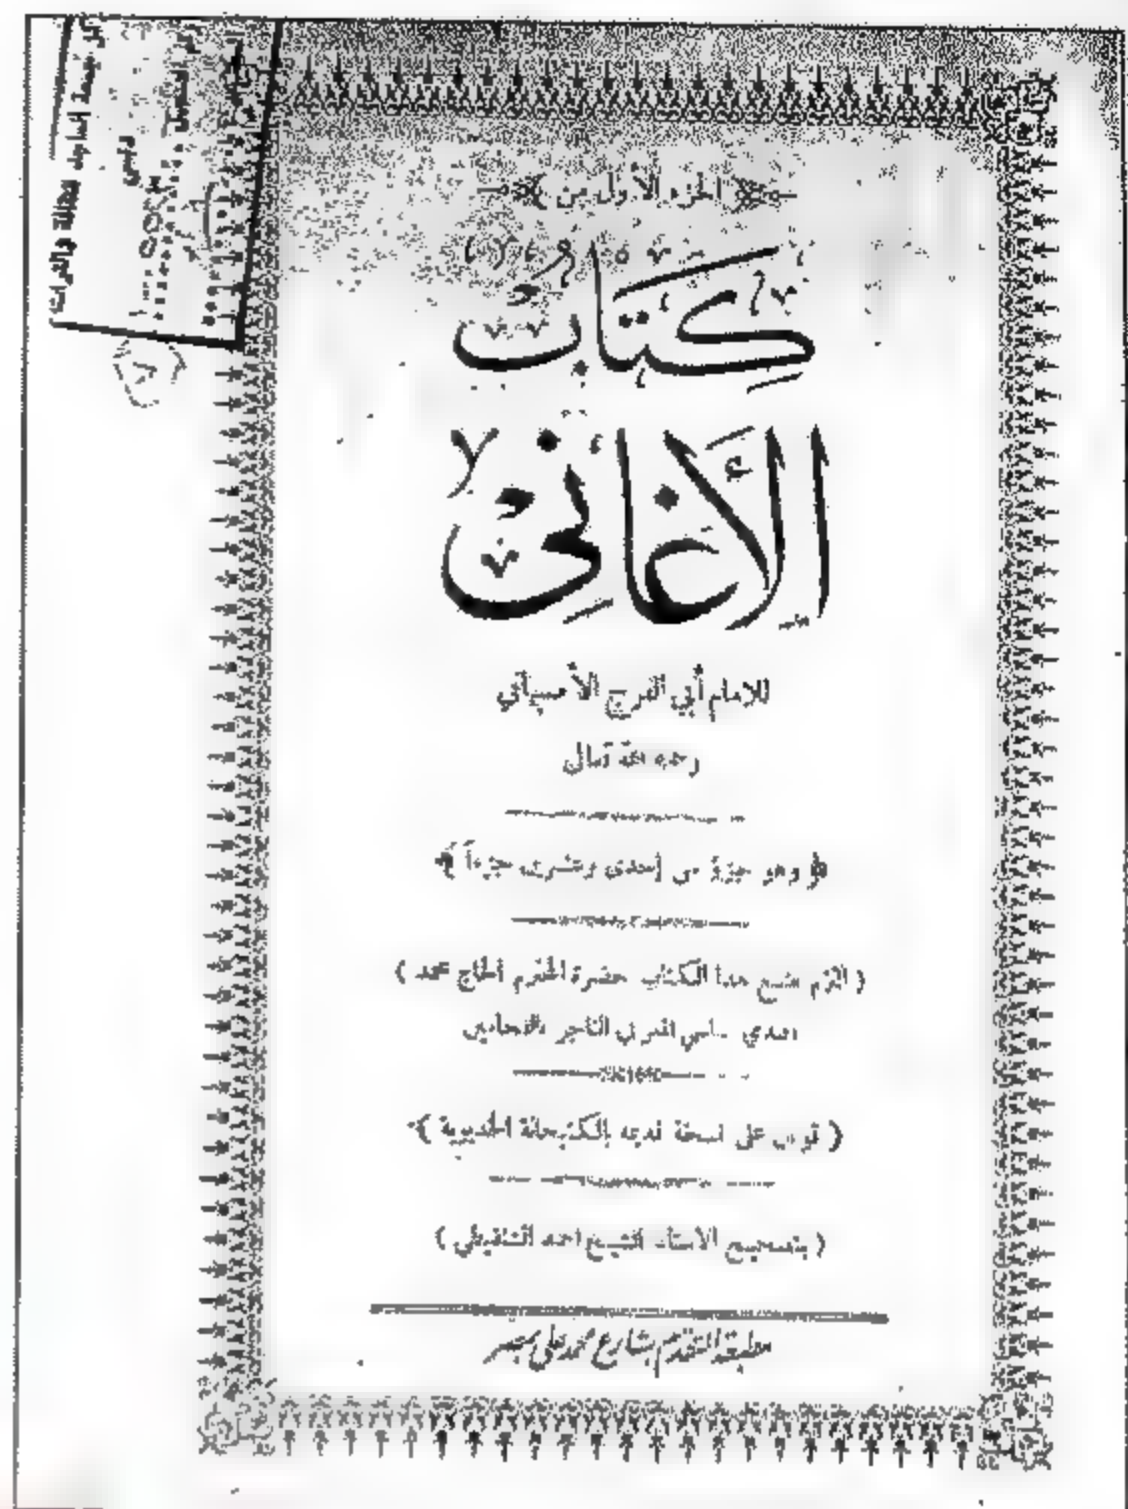 الجزء الأول من
كِتَابُ
الأَغَانِي
للامام أبي الفرج الأصبهاني
رحمه الله تعالى
﴿ وهو جزء من إحدى وعشرين جزءاً ﴾
( التزم بطبع هذا الكتاب حضرة المحترم الحاج محمد )
افندي ساسي المغربي التاجر بالفحامين
( قوبل على نسخة قديمة بالكتبخانة الخديوية )
( بتصحيح الاستاذ الشيخ احمد الشنقيطي )
مطبعة التقدم بشارع محمد علي بمصر